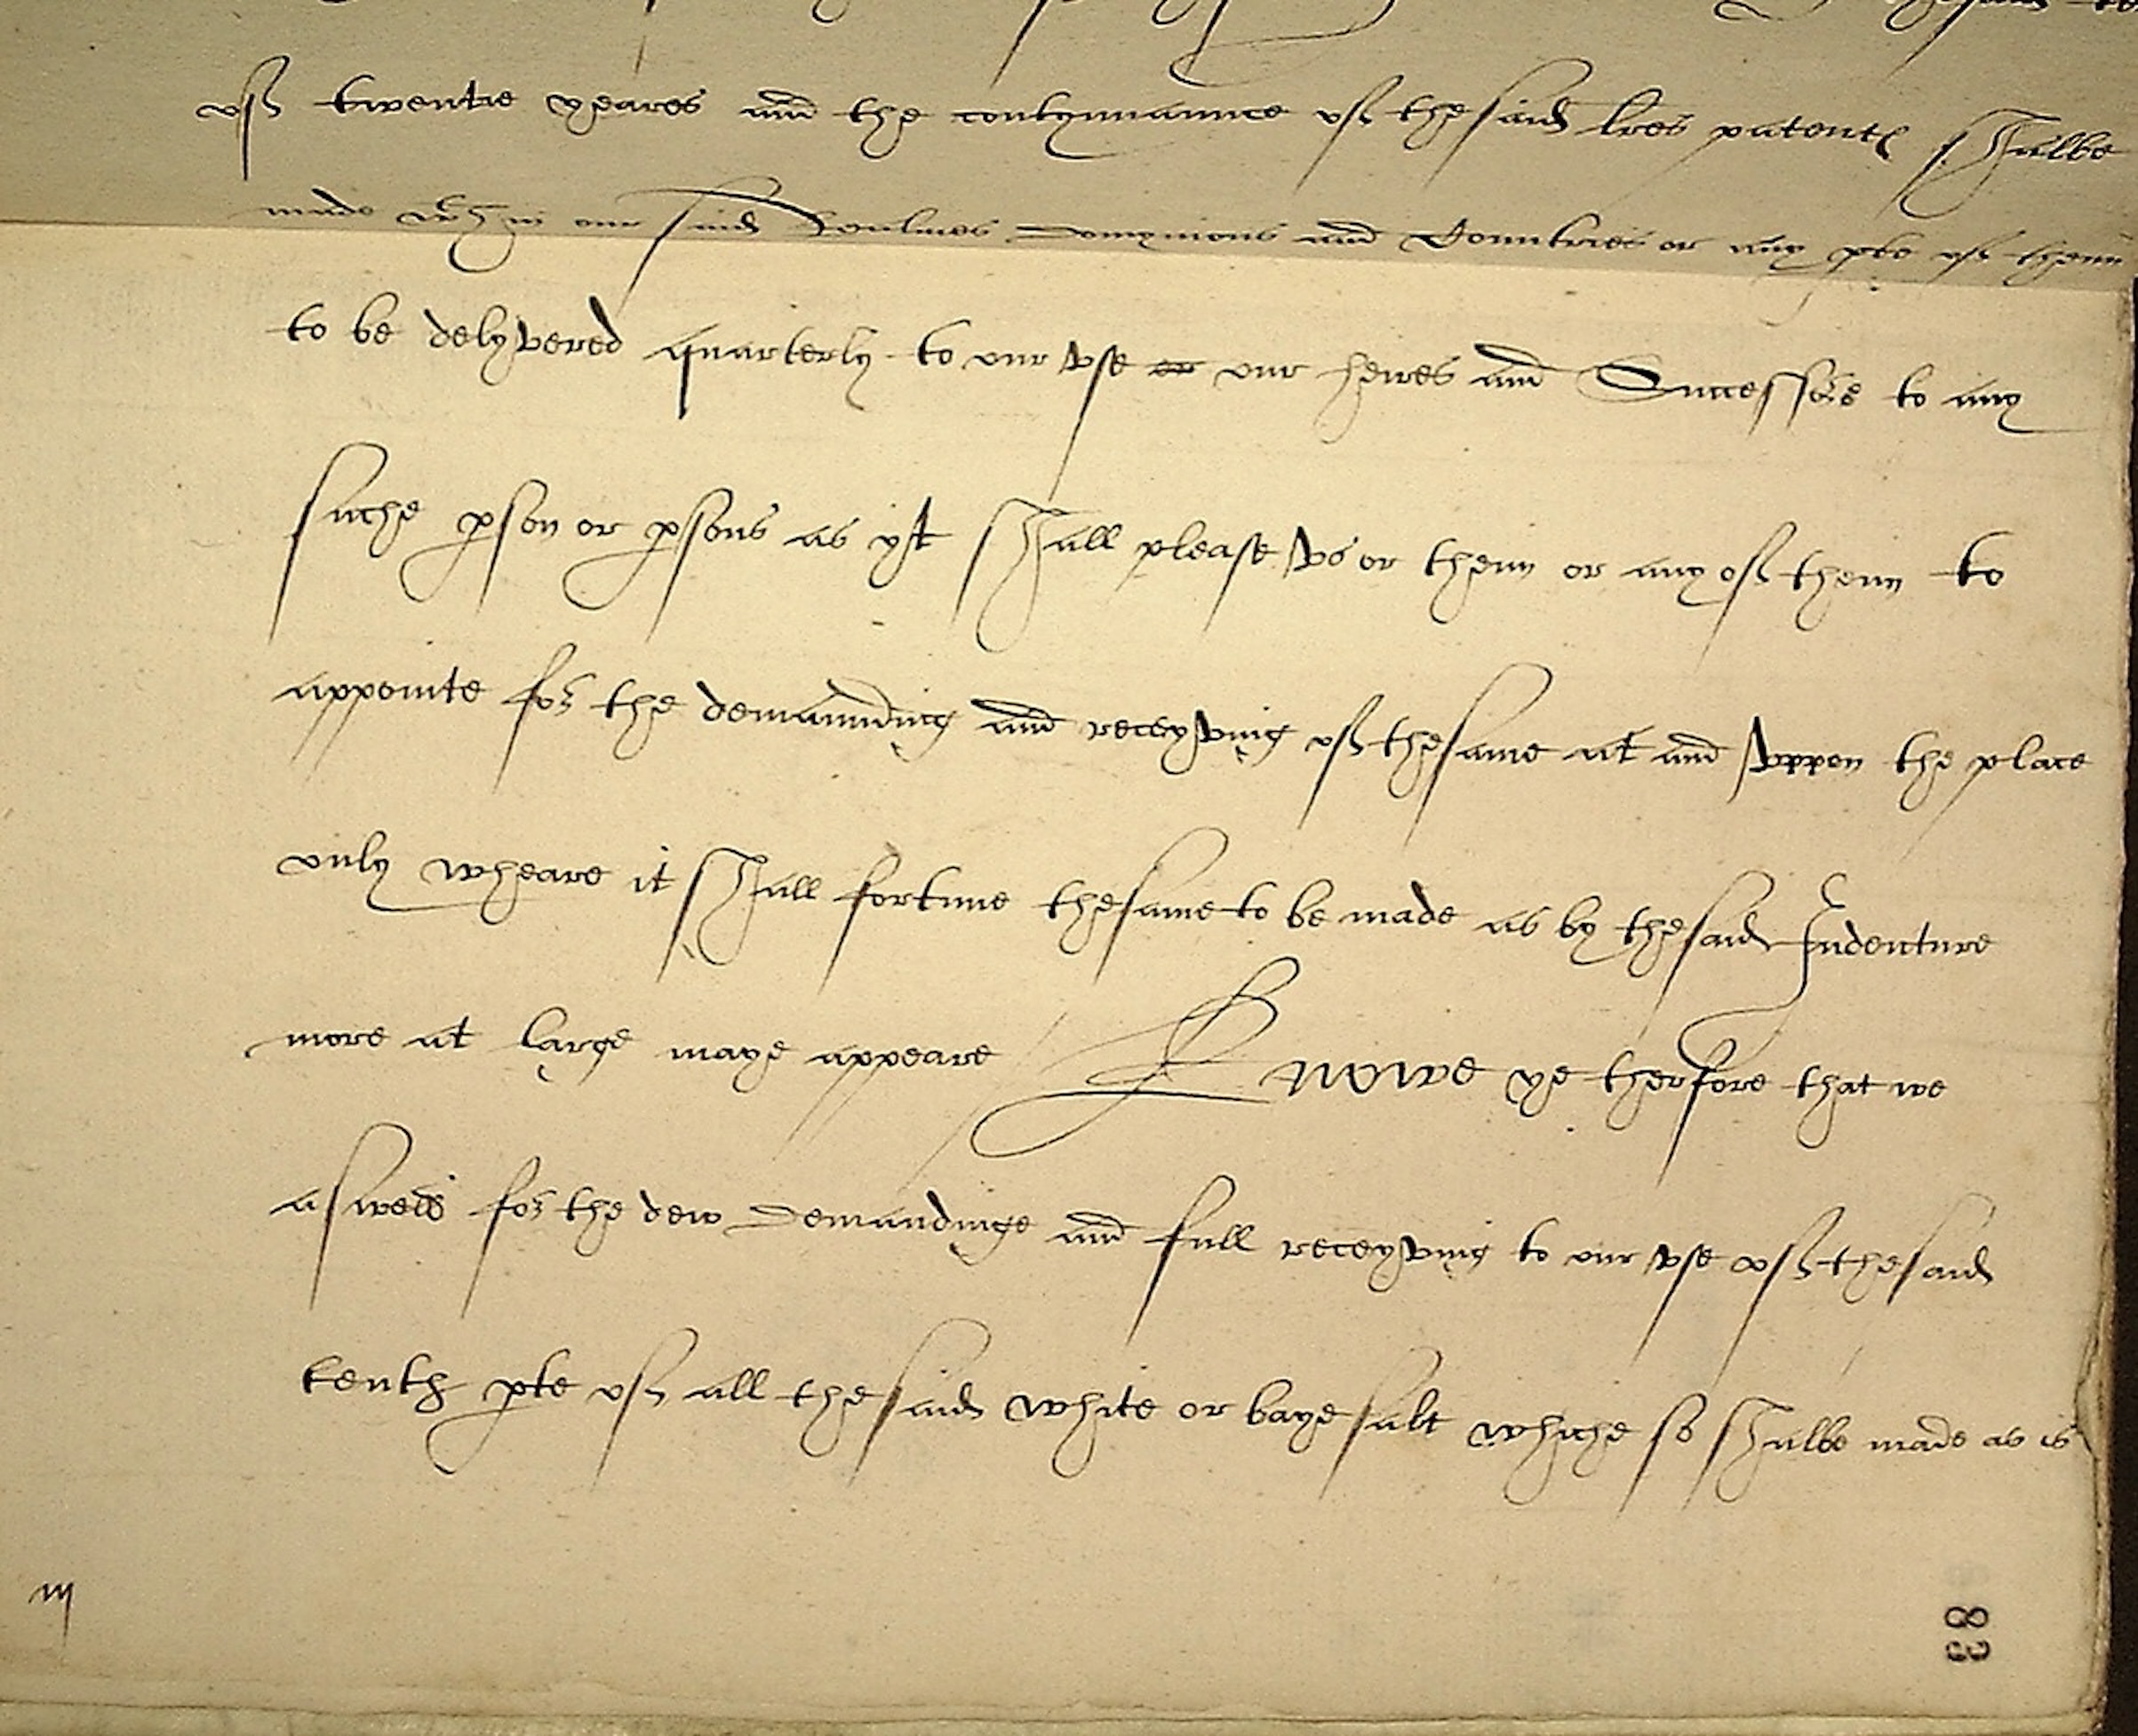 of twentie yeares and the contynnaunce of thesaid lres patent shalbe
made wthin our said Realmes Domynions and Countries or any pte of them
to be delyvered quarterly to our vse or our heires and Successors to any
suche pson or psons as yt shall please vs or them or any of them to
appointe for the demaunding and receyving of thesame at and vppon the place
only wheare it shall fortune thesame to be made as by thesaid Indenture
more at large maye appeare / Knowe ye therfore that we
aswell for the dew Demandinge and full receyving to our vse of thesaid
tenth pte of all thesaid white or baye salt whiche so shalbe made as is
83